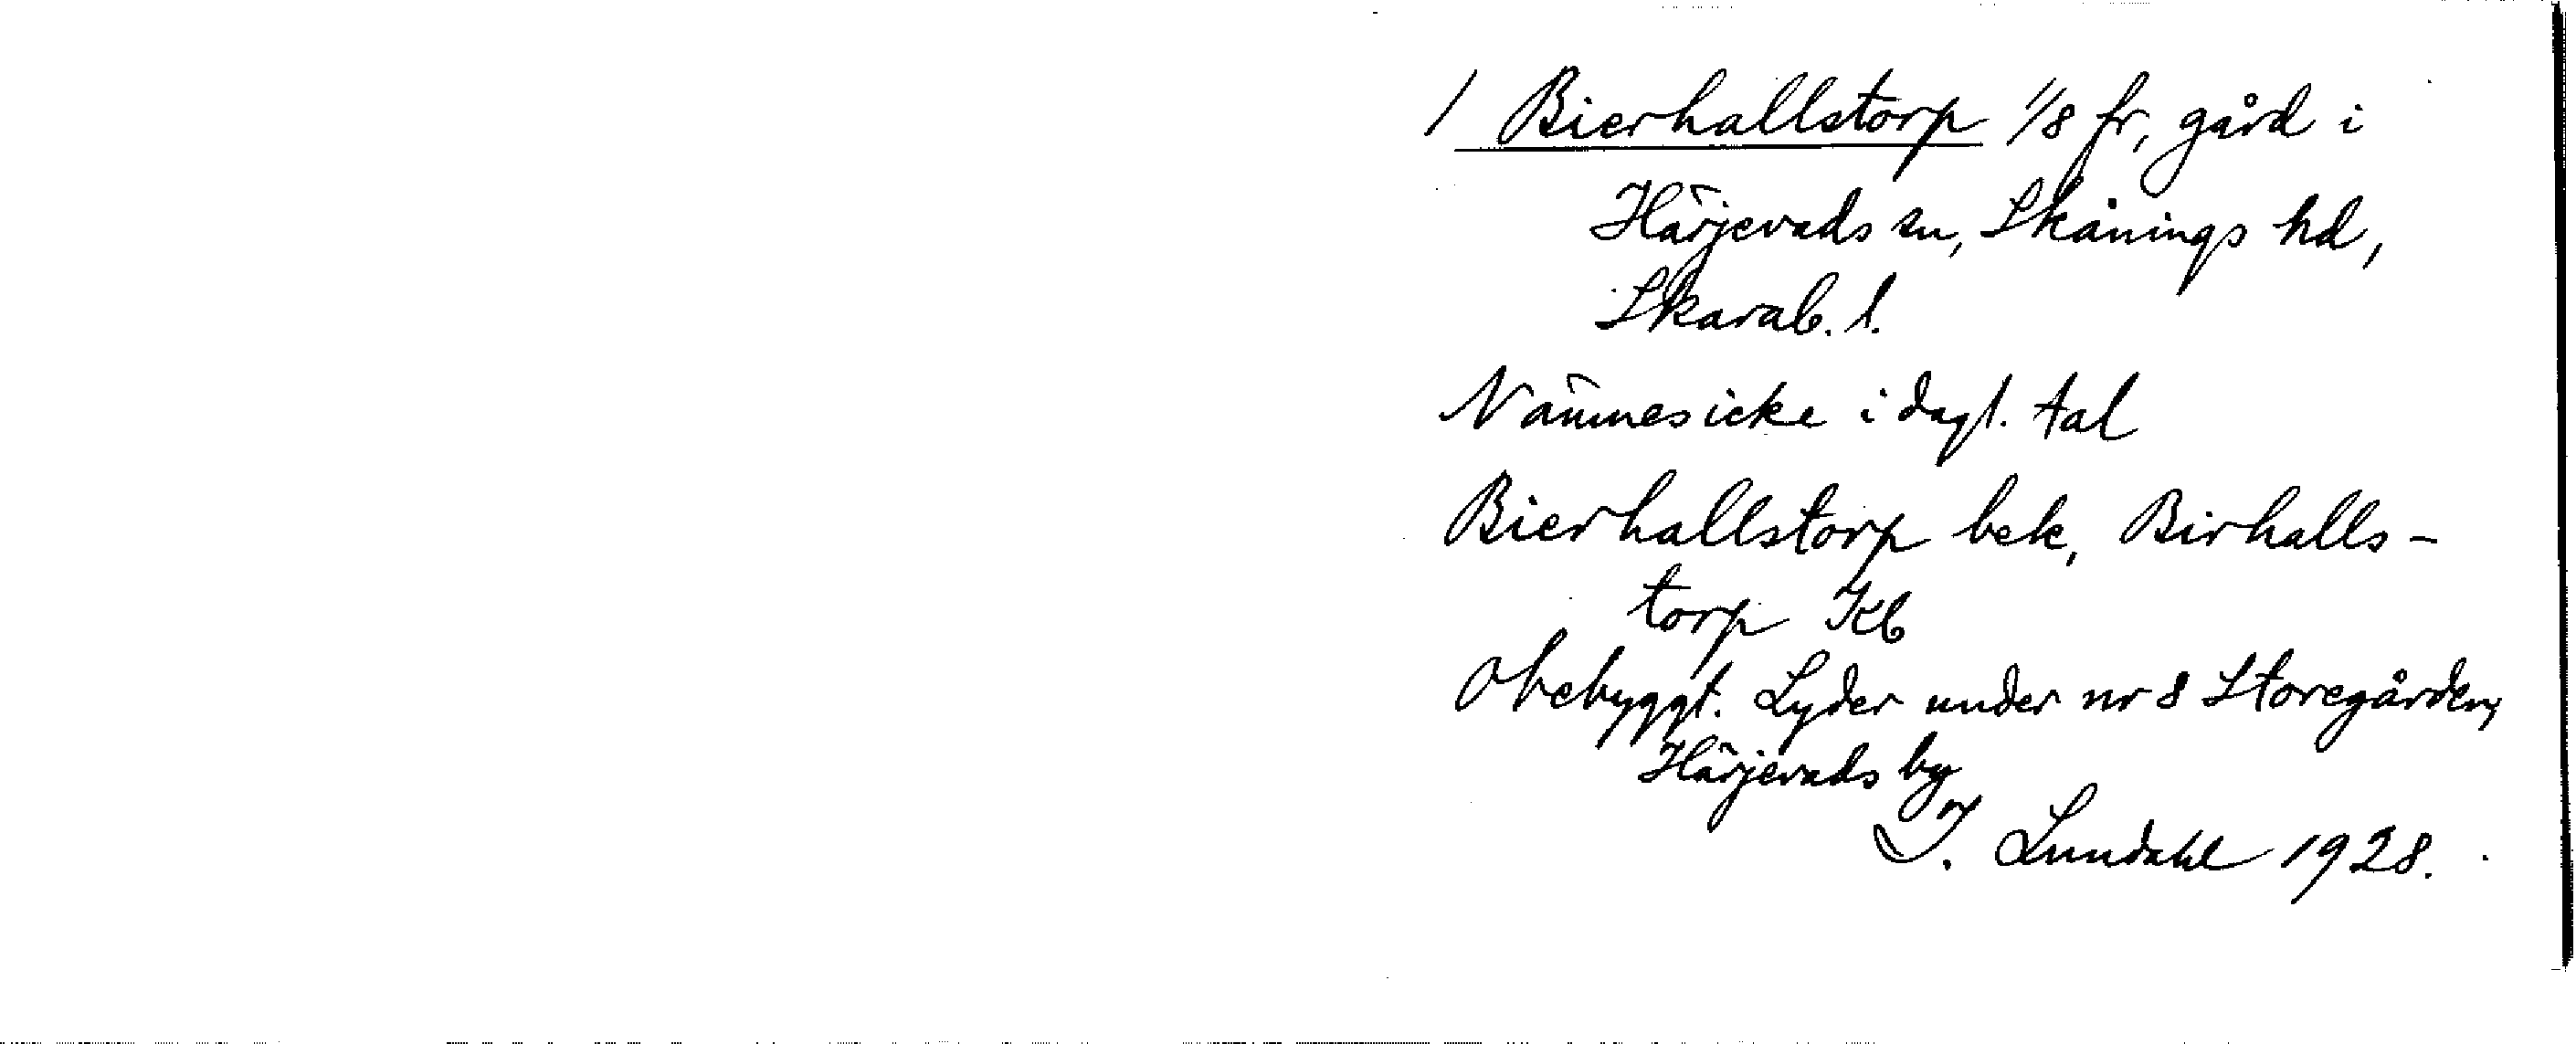 1 Bierhallstorp 1/8 fr, gård i
Härjevads sn, Skånings hd,
Skarab. l.
Nämnes icke i dagl. tal
Bierhallstorp bek, Birhalls-
torp Kb
Obebyggt. Lyder under nr 8 Storegården,
Härjevads by
I. Lundahl 1928.